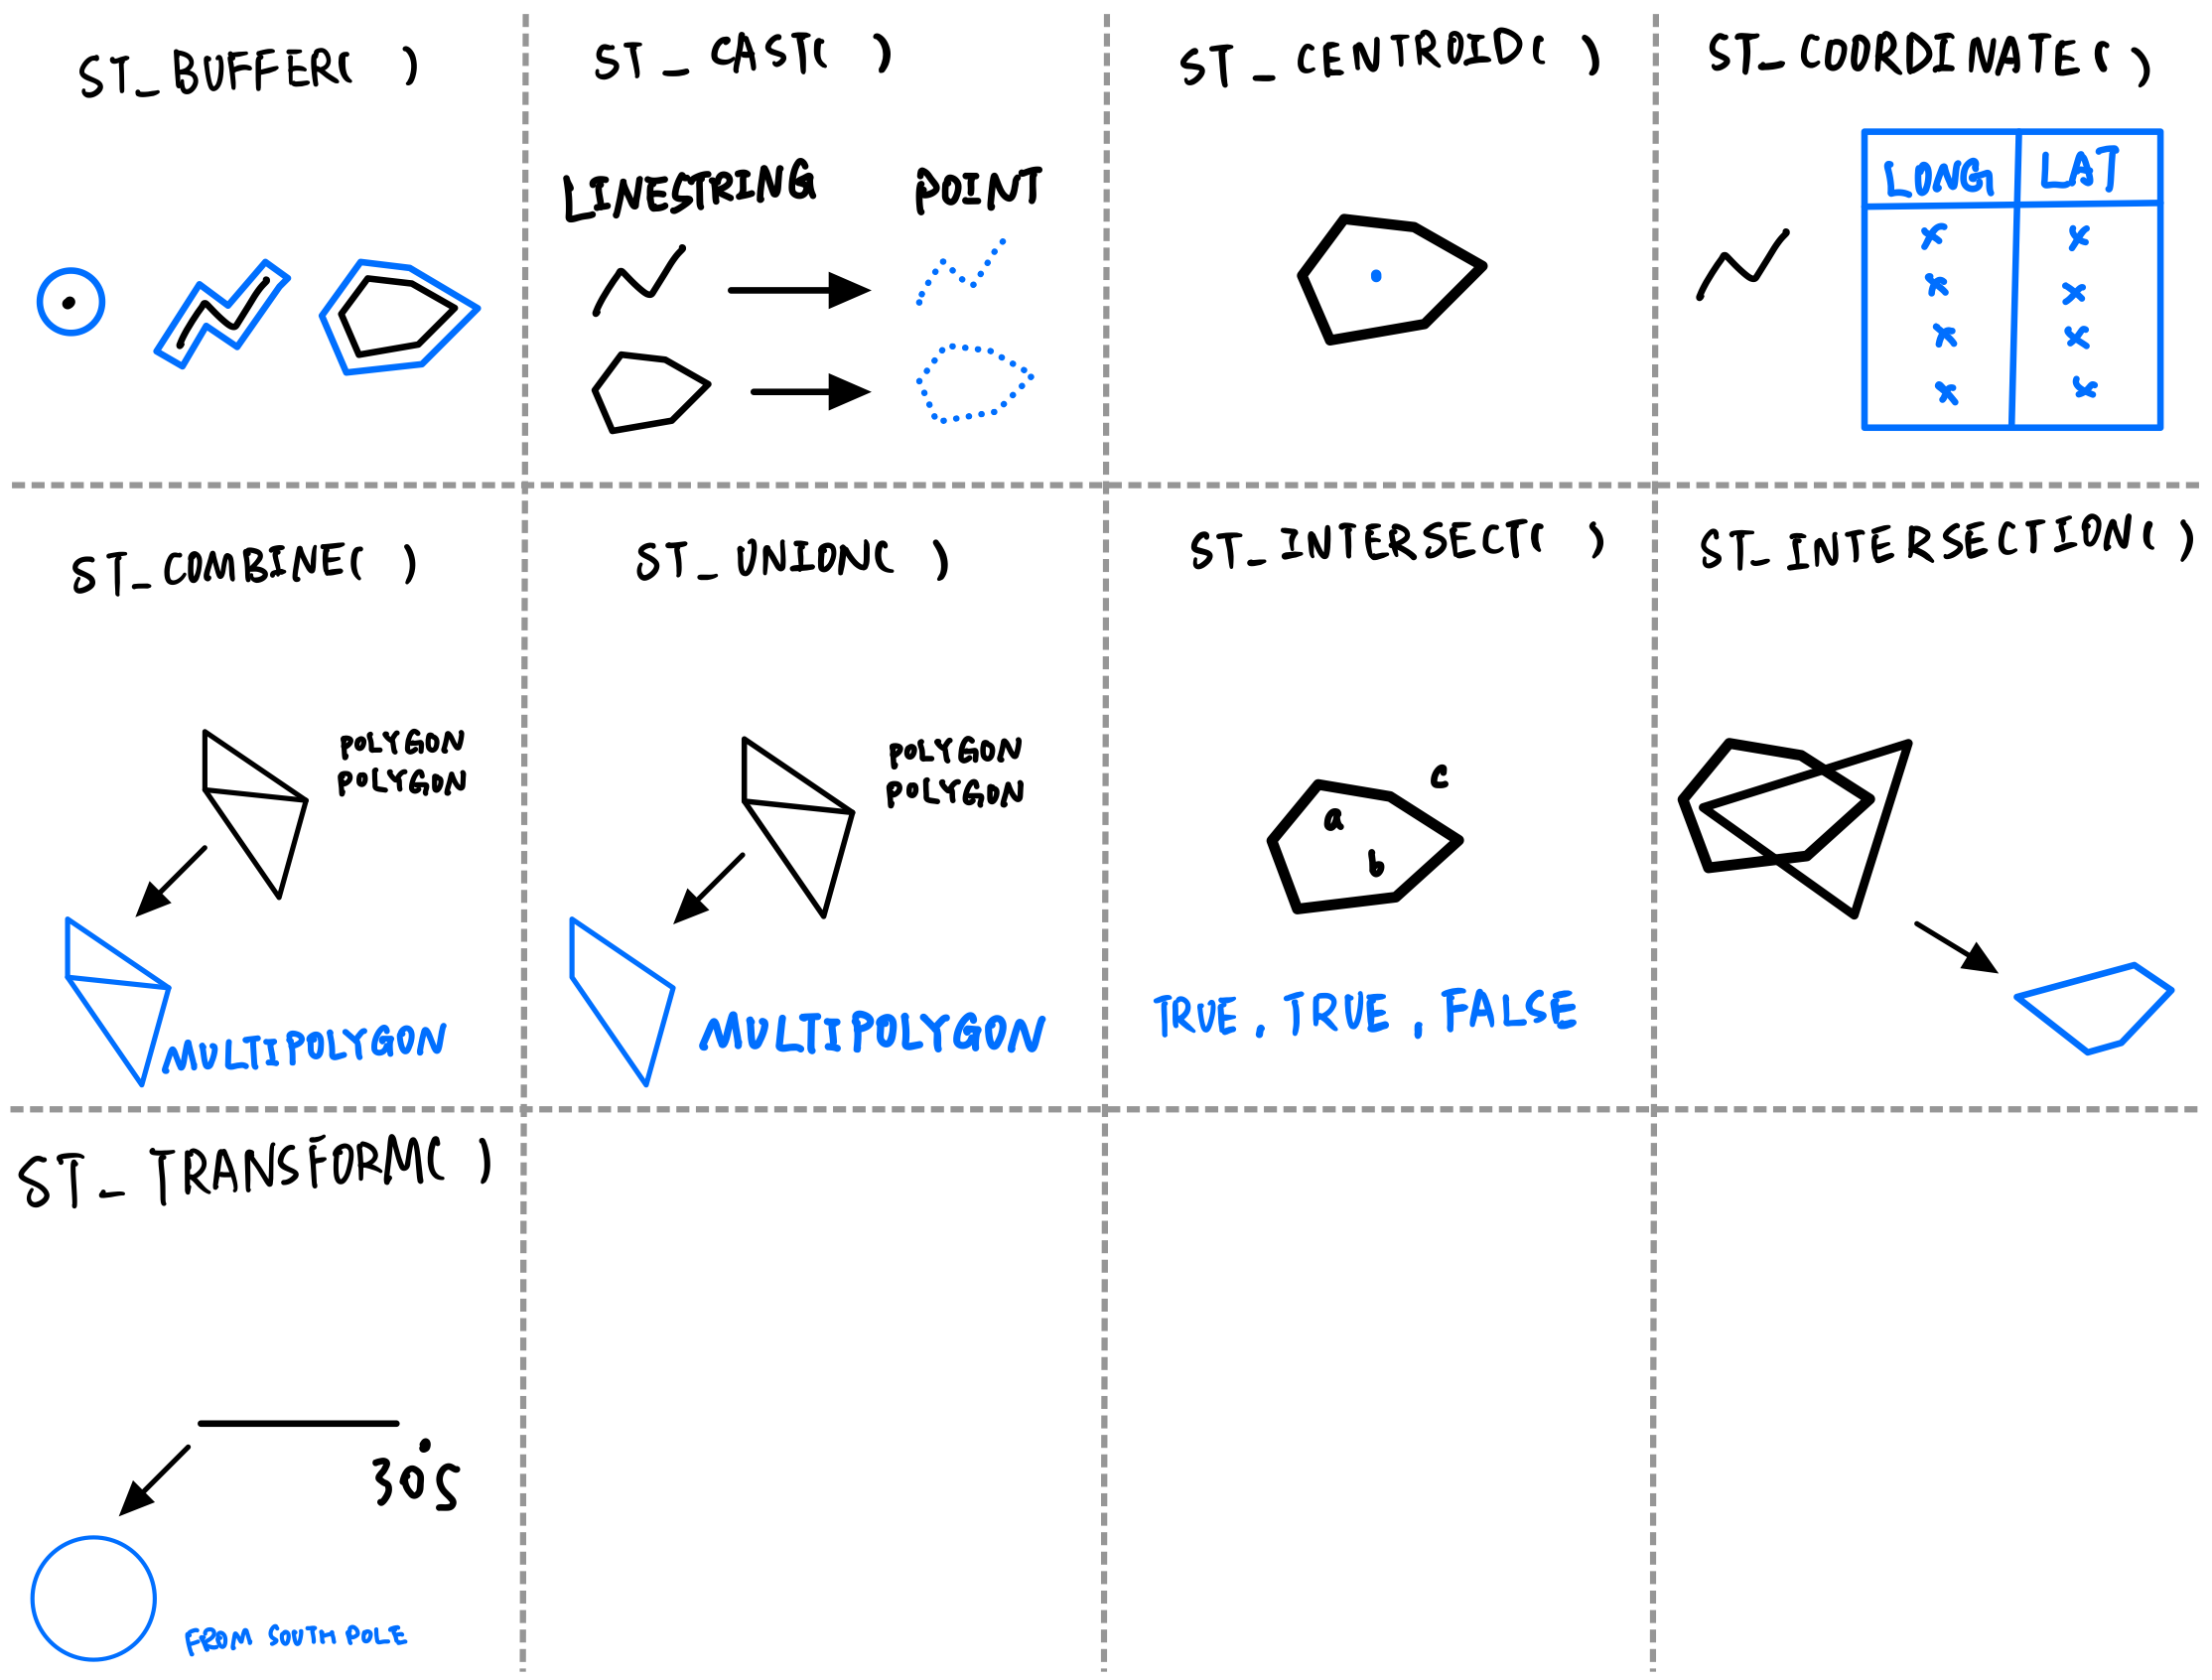 ST_BUFFER( )
ST_CAST( )
LINESTRING POINT
ST_CENTROID( )
ST_COORDINATE( )
LONG LAT
x x
x x
x x
x x
ST_COMBINE( )
POLYGON
POLYGON
MULTIPOLYGON
ST_UNION( )
POLYGON
POLYGON
MULTIPOLYGON
ST_INTERSECT( )
c
a
b
TRUE, TRUE, FALSE
ST_INTERSECTION( )
ST_TRANSFORM( )
30°S
FROM SOUTH POLE